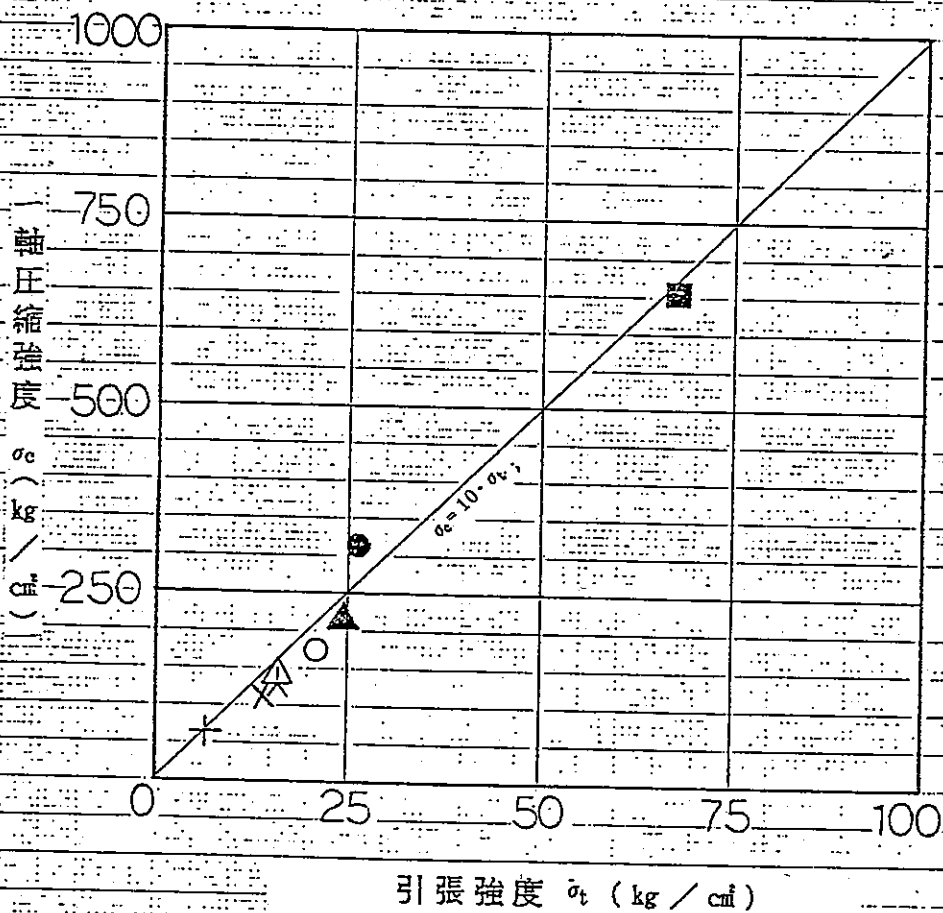 1000
750
500
250
一軸圧縮強度 σc (kg/cm²)
σc = 10・σt
0 25 50 75 100
引張強度 σt (kg/cm²)